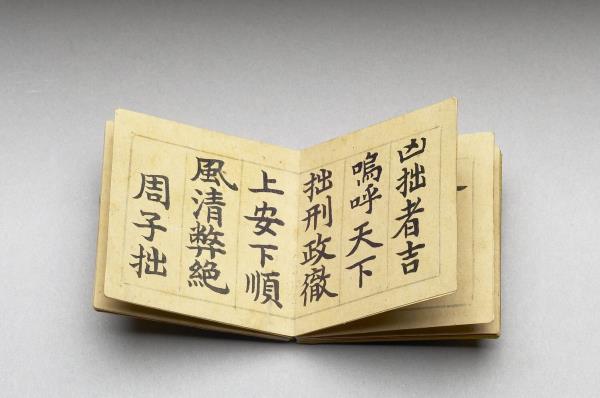 凶拙者吉
嗚呼天下
拙刑政徹
上安下順
風清弊絶
周子拙